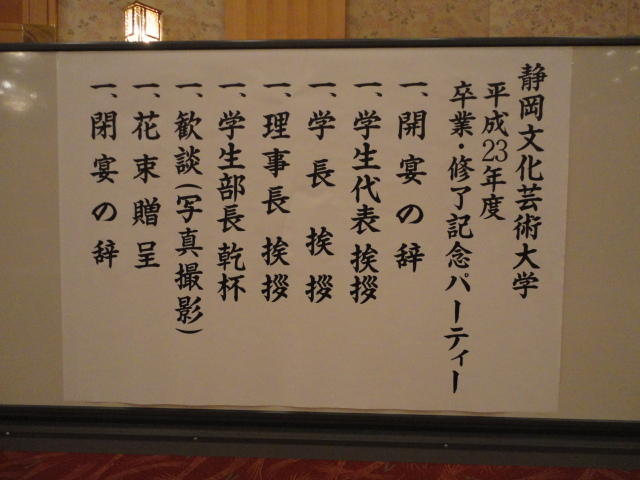 静岡文化芸術大学
平成23年度
卒業・修了記念パーティー
一、開宴の辞
一、学生代表挨拶
一、学長 挨拶
一、理事長 挨拶
一、学生部長乾杯
一、歓談(写真撮影)
一、花束贈呈
一、閉宴の辞